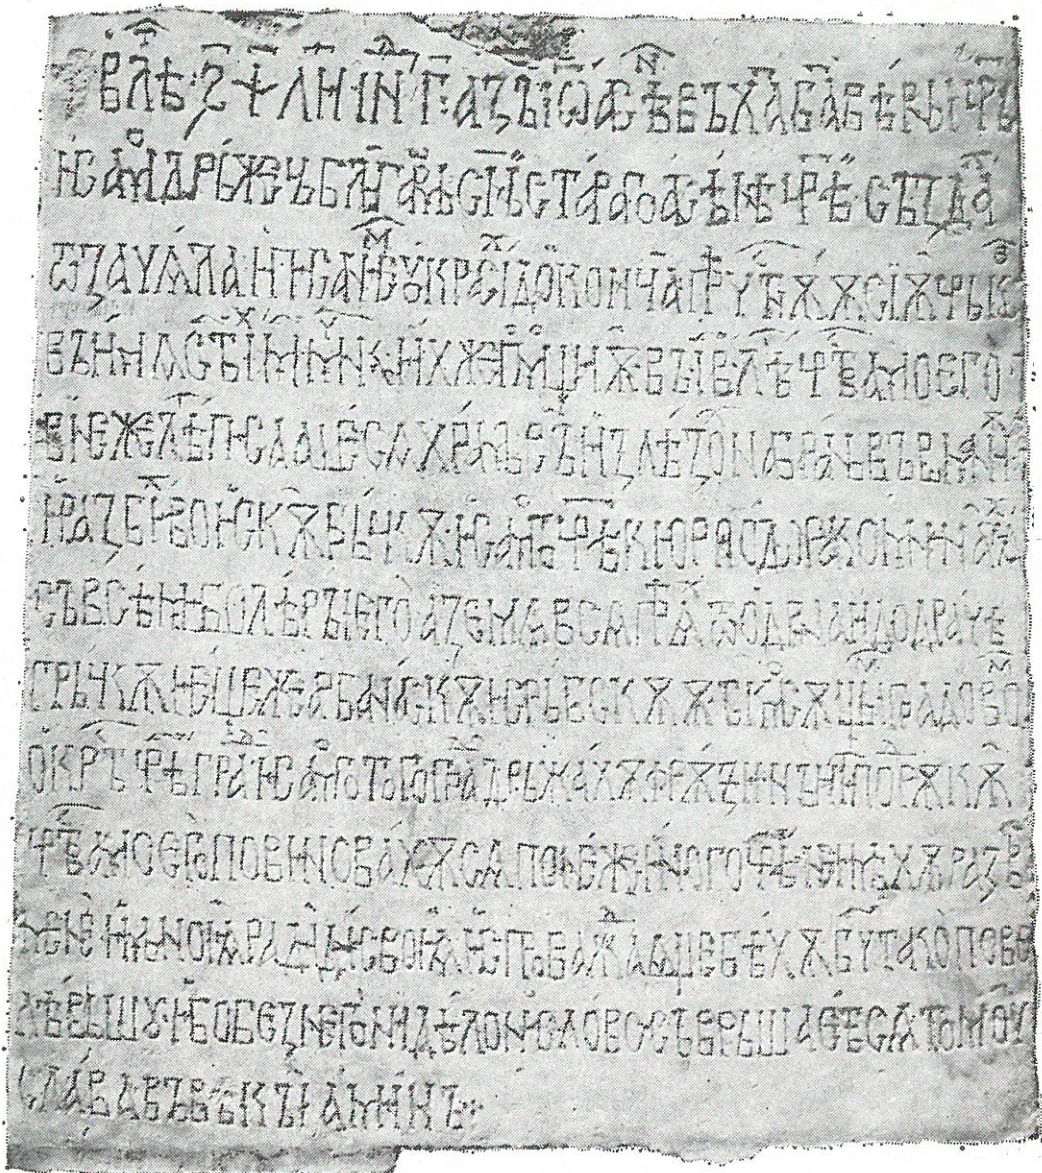 влѣ҂ѕ҃ѱ҃л҃и҃ін г҃ азъ іѡ асѣнь въ ха ба вѣрьныи цр҃ь
и самодрьжець бльгаромь сн҃ь стараго асѣнѣ цр҃ѣ създахъ
ѿ зачѧла и писаниемь украсіхъ до конча прѣчтѫѫ сіѫ црькв
въ имѧ стъіхъ м҃ мчнкъ ихже помощиѫ въ і҃в лѣ цр҃тва моего
в неже лѣт писааше сѧ храмь съ излѣзохъ на брань въ романиѫ
и разбихь воискѫ грьчкѫ и самого цр҃ѣ кюрь тодора комнина ѧхъ
съ всѣми болѣръі его а земѧ всѧ прѣѧхъ ѿ одрина и до драчѣ
грьчкѫ и еще же арбанаскѫ и срьбскѫ ѫ ткмо сѫщыѧ градовом
окрть цр҃ѣграда и самого того града дрьжахѫ фрѫзи нъ и ти по рѫкѫ
цр҃тва моего повиновахѫ сѧ понеже иного цр҃ѣ не имѣхѫ развѣ
мене и мноѫ ради дни своѧ испровождаахѫ бу тако повел
ѣвьшу ибо без него ни дѣло ни слово съврьшает сѧ тому
слава въ вѣкъі аминъ